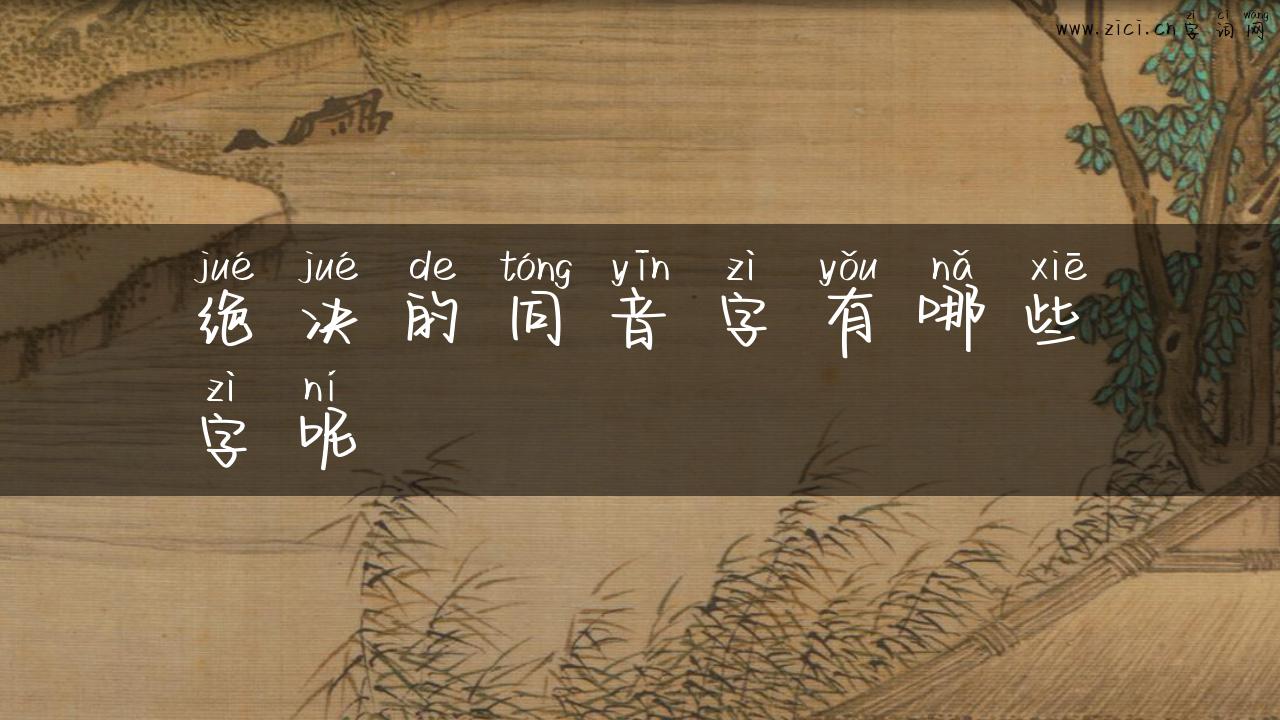 zì cí wǎng
www.zici.cn 字词网
jué jué de tóng yīn zì yǒu nǎ xiē
绝决的同音字有哪些
zì ní
字呢